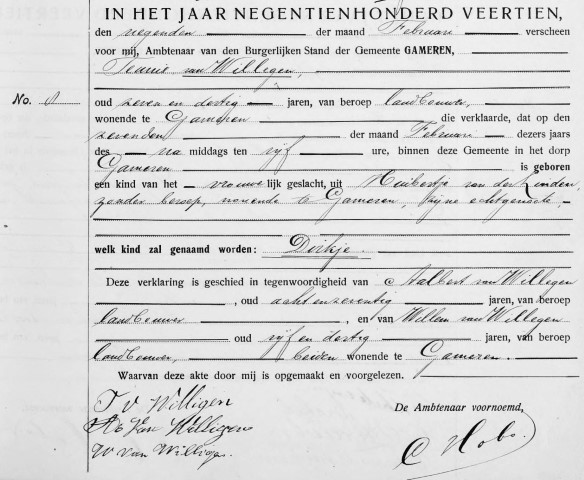 IN HET JAAR NEGENTIENHONDERD VEERTIEN,
den negenden der maand Februari verscheen
voor mij, Ambtenaar van den Burgerlijken Stand der Gemeente GAMEREN,
Teunis van Willegen,
No. 8 oud zeven en dertig jaren, van beroep landbouwer,
wonende te Gameren die verklaarde, dat op den
zevenden der maand Februari dezers jaars
des na middags ten vijf ure, binnen deze Gemeente in het dorp
Gameren is geboren
een kind van het vrouwelijk geslacht, uit Huibertje van der Linden,
zonder beroep, wonende te Gameren, zijne echtgenoote,
welk kind zal genaamd worden: Dirkje.
Deze verklaring is geschied in tegenwoordigheid van Aalbert van Willegen
, oud acht en zeventig jaren, van beroep
landbouwer, en van Willem van Willegen
oud vijf en dertig jaren, van beroep
landbouwer, beiden wonende te Gameren.
Waarvan deze akte door mij is opgemaakt en voorgelezen.
T v Willigen
van Willigen
W van Willigen.
De Ambtenaar voornoemd,